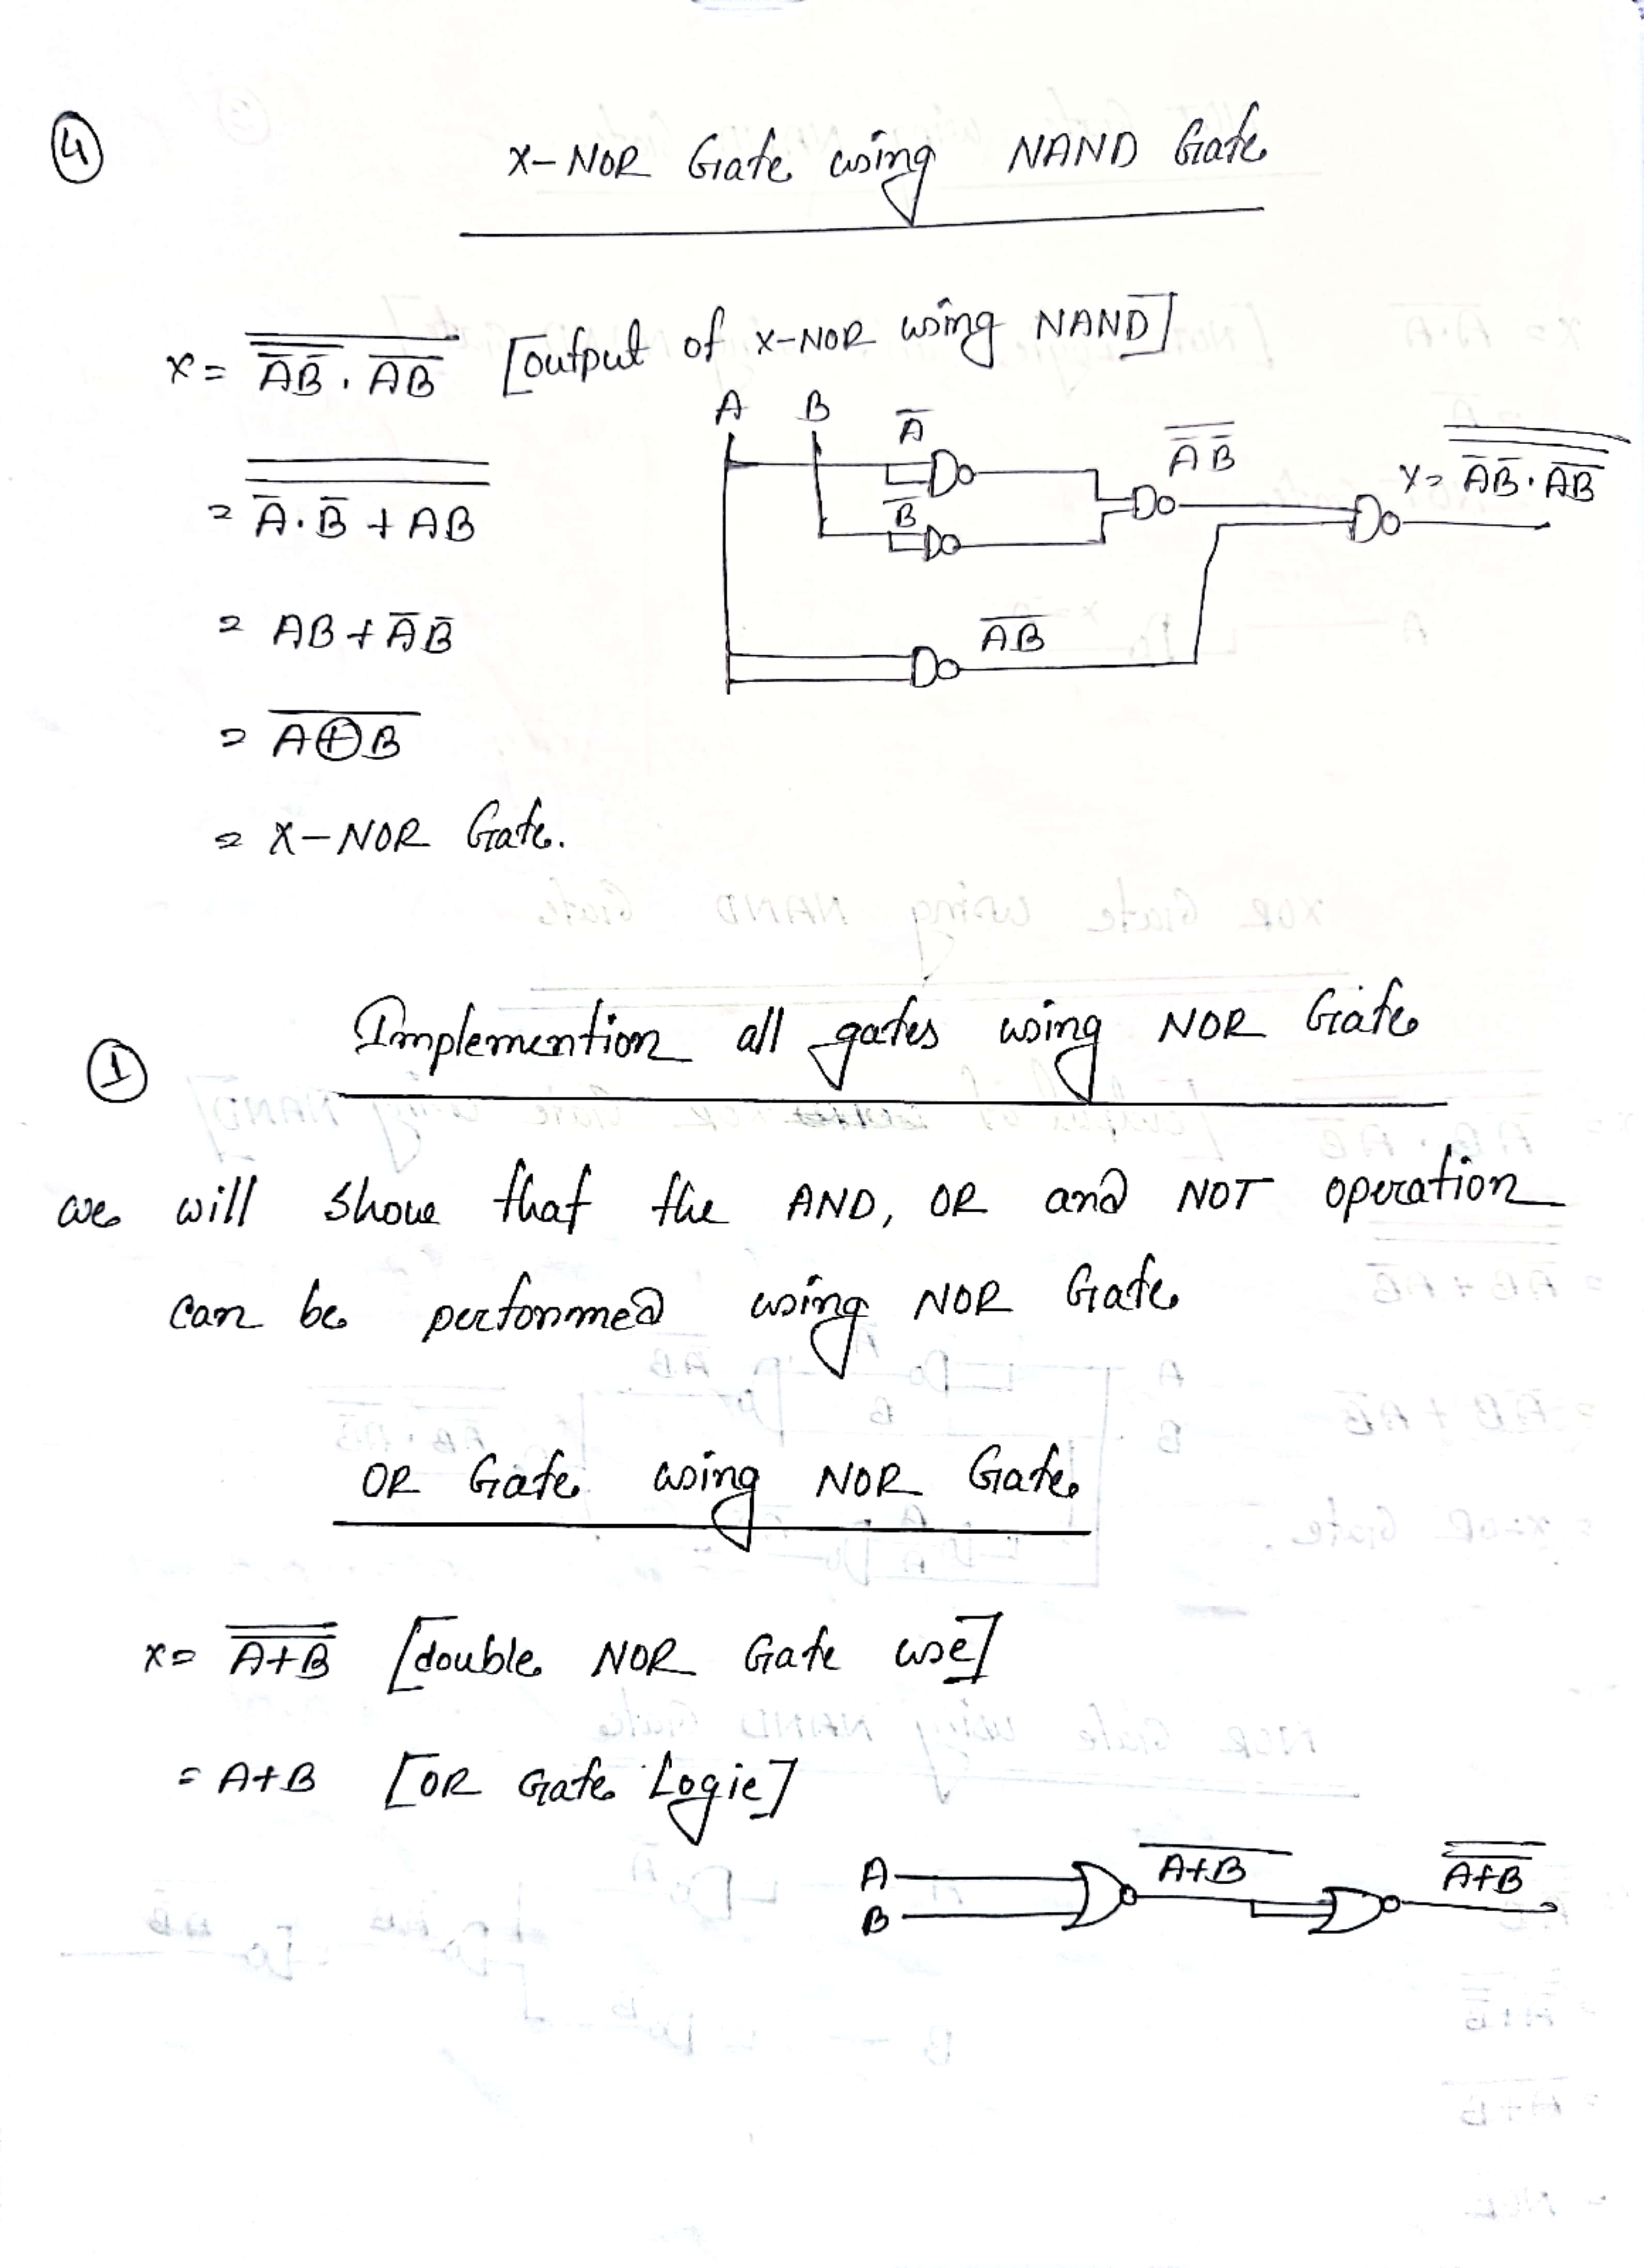 ④
X-NOR Gate using NAND Gate
X = \overline{\overline{\overline{A}\,\overline{B}} . \overline{AB}} [output of X-NOR using NAND]
A B \overline{A} \overline{\overline{A}\,\overline{B}} Y = \overline{\overline{\overline{\overline{A}\,\overline{B}} . \overline{AB}}}
\overline{B}
= \overline{\overline{\overline{A}.\overline{B} + AB}}
= AB + \overline{A}\,\overline{B}
\overline{AB}
= \overline{A⊕B}
= X-NOR Gate.
① Implemention all gates using NOR Gate
we will show that the AND, OR and NOT operation
can be performed using NOR Gate
OR Gate using NOR Gate
X = \overline{\overline{A+B}} [double NOR Gate use]
= A+B [OR Gate Logic]
A \overline{A+B} \overline{\overline{A+B}}
B